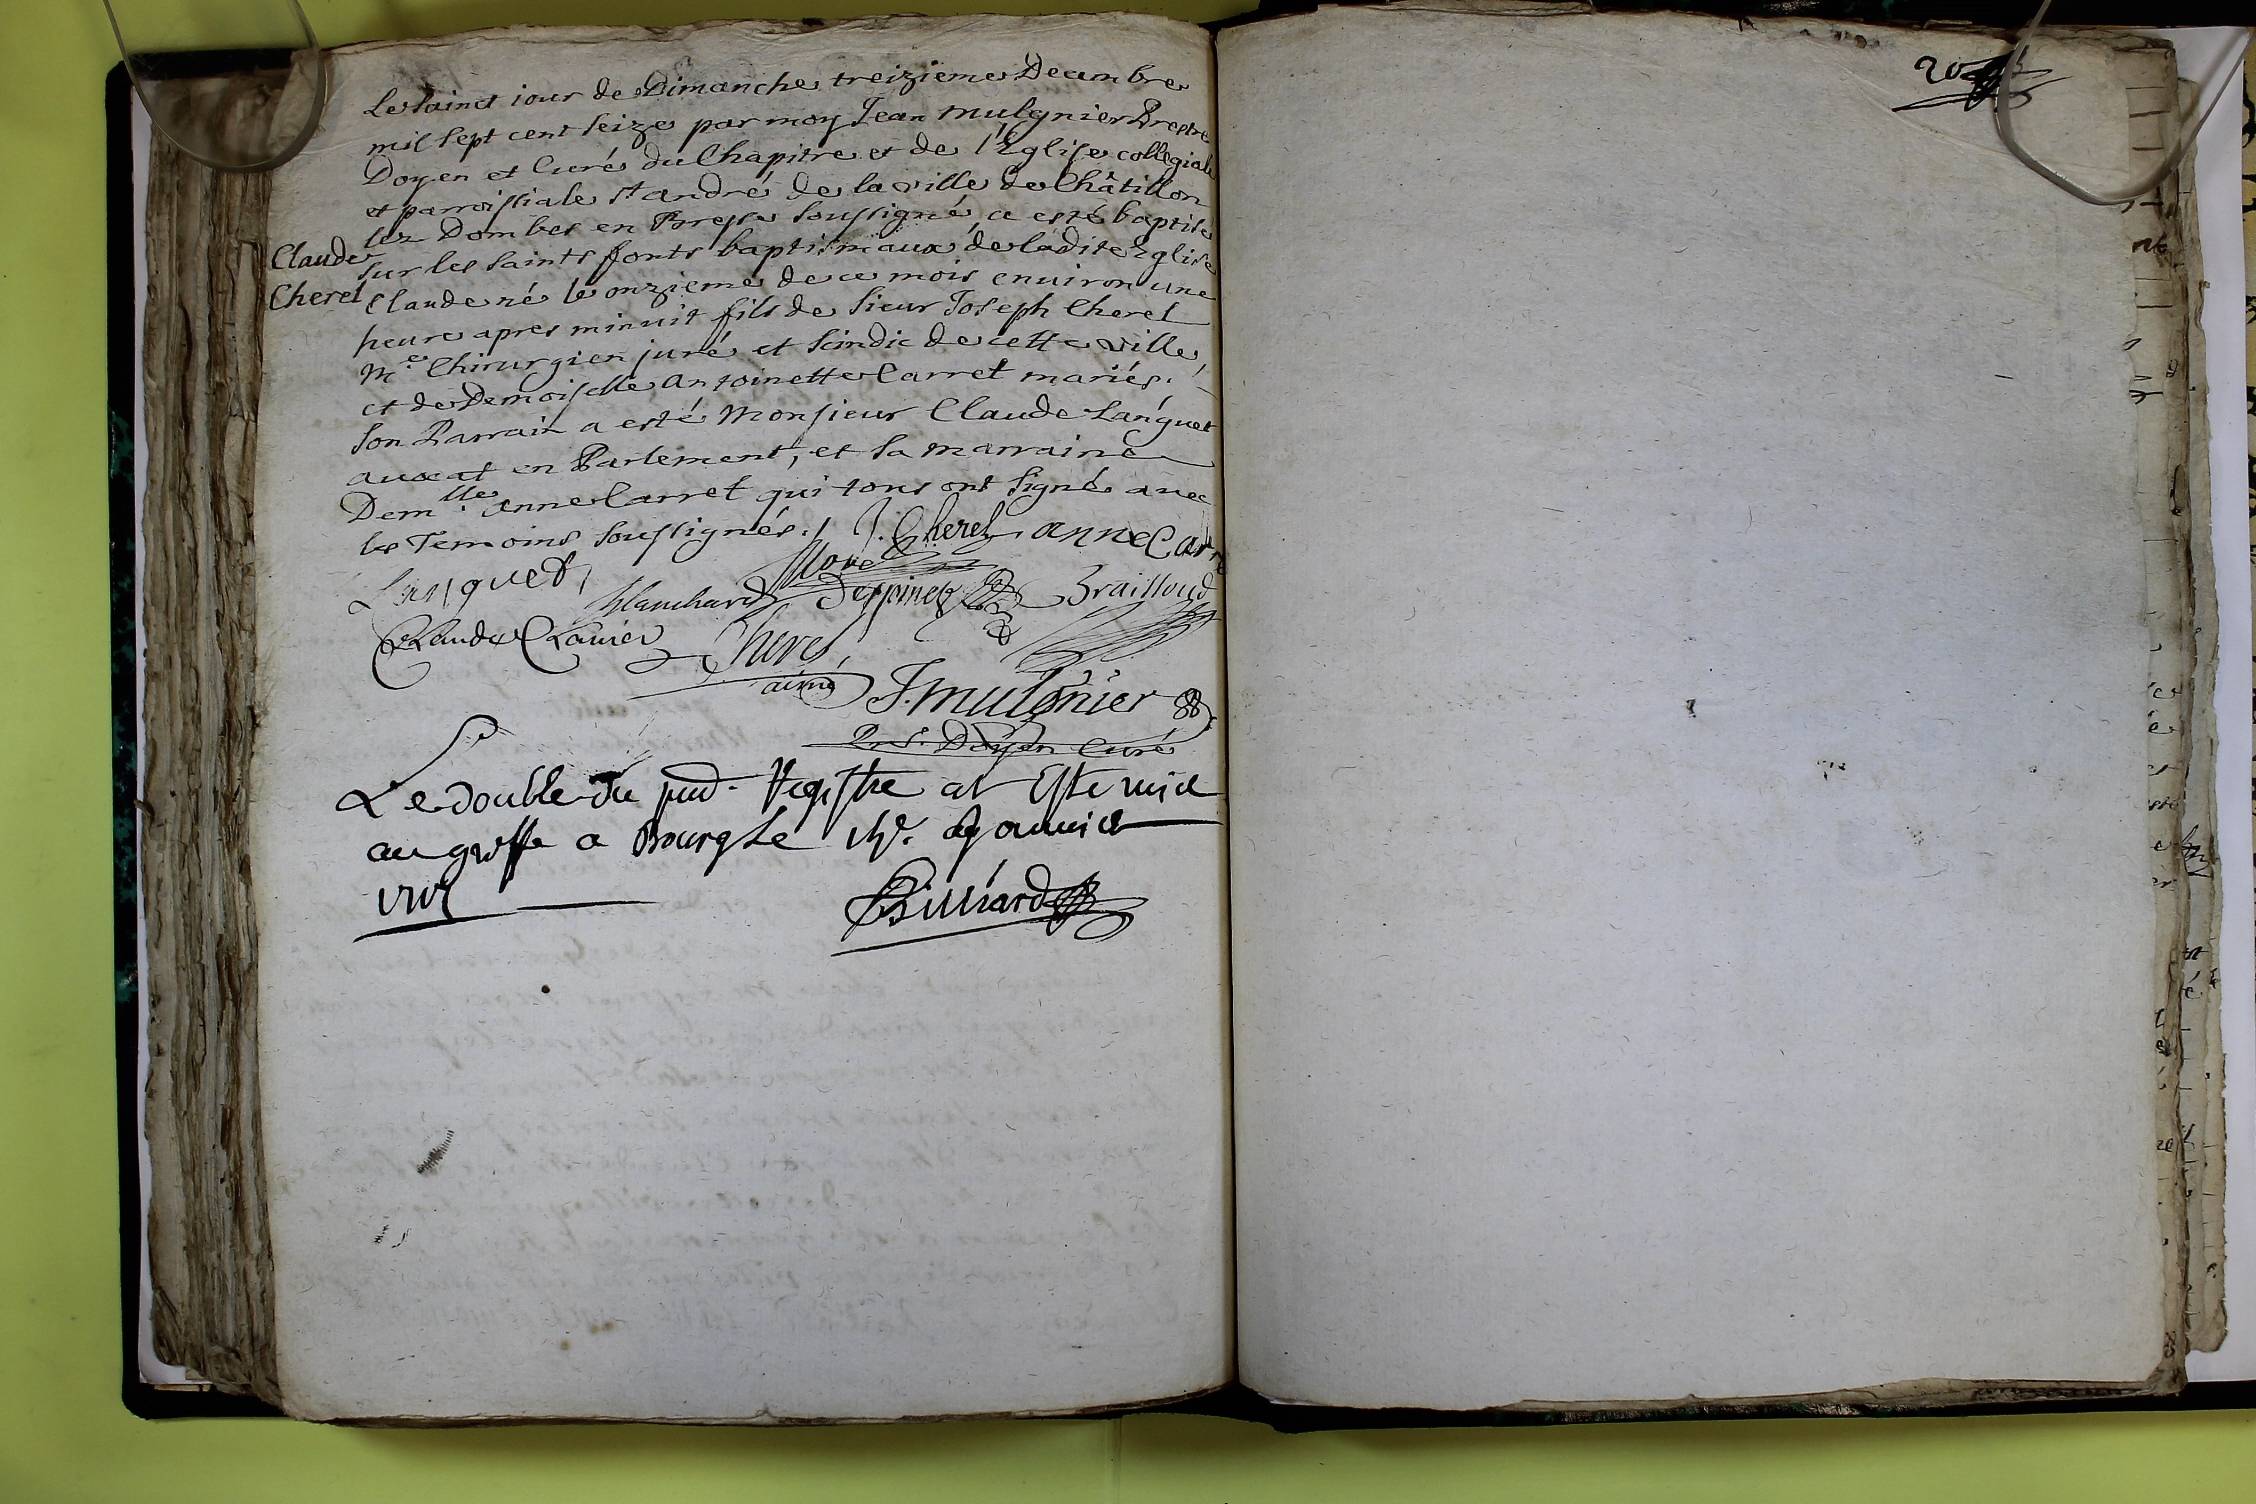 Le saint iour de Dimanche treizieme Decembre
mil sept cent seize par moy Jean mulgnier Prestre
Doyen et Curé du Chapitre et de l'Eglise collegiale
et parroissiale st andré de la ville de Châtillon
lez Dombes en Bresse soussigné a esté baptisé
sur les saints fonts baptismaux de ladite Eglise
Claude
Cherel
Claude né le onzieme de ce mois enuiron une
heure apres minuit fils de sieur Joseph Cherel
Me Chirurgien juré et sindic de cette ville,
et de Demoiselle antoinette Carret mariés.
Son Parrain a esté Monsieur Claude Languet
auocat en Parlement, et sa marraine
Demlle. anne Carret qui tous ont signé auec
les Temoins soussignés./. J. Cherel anne Carre
Languet
Blanchard Despinet Brailloud
Claude Clauier Cherel
aimé J. mulgnier
Doyen Curé
Le double du Registre at Esté mis
au greffe a Bourg Le
Billiard
20